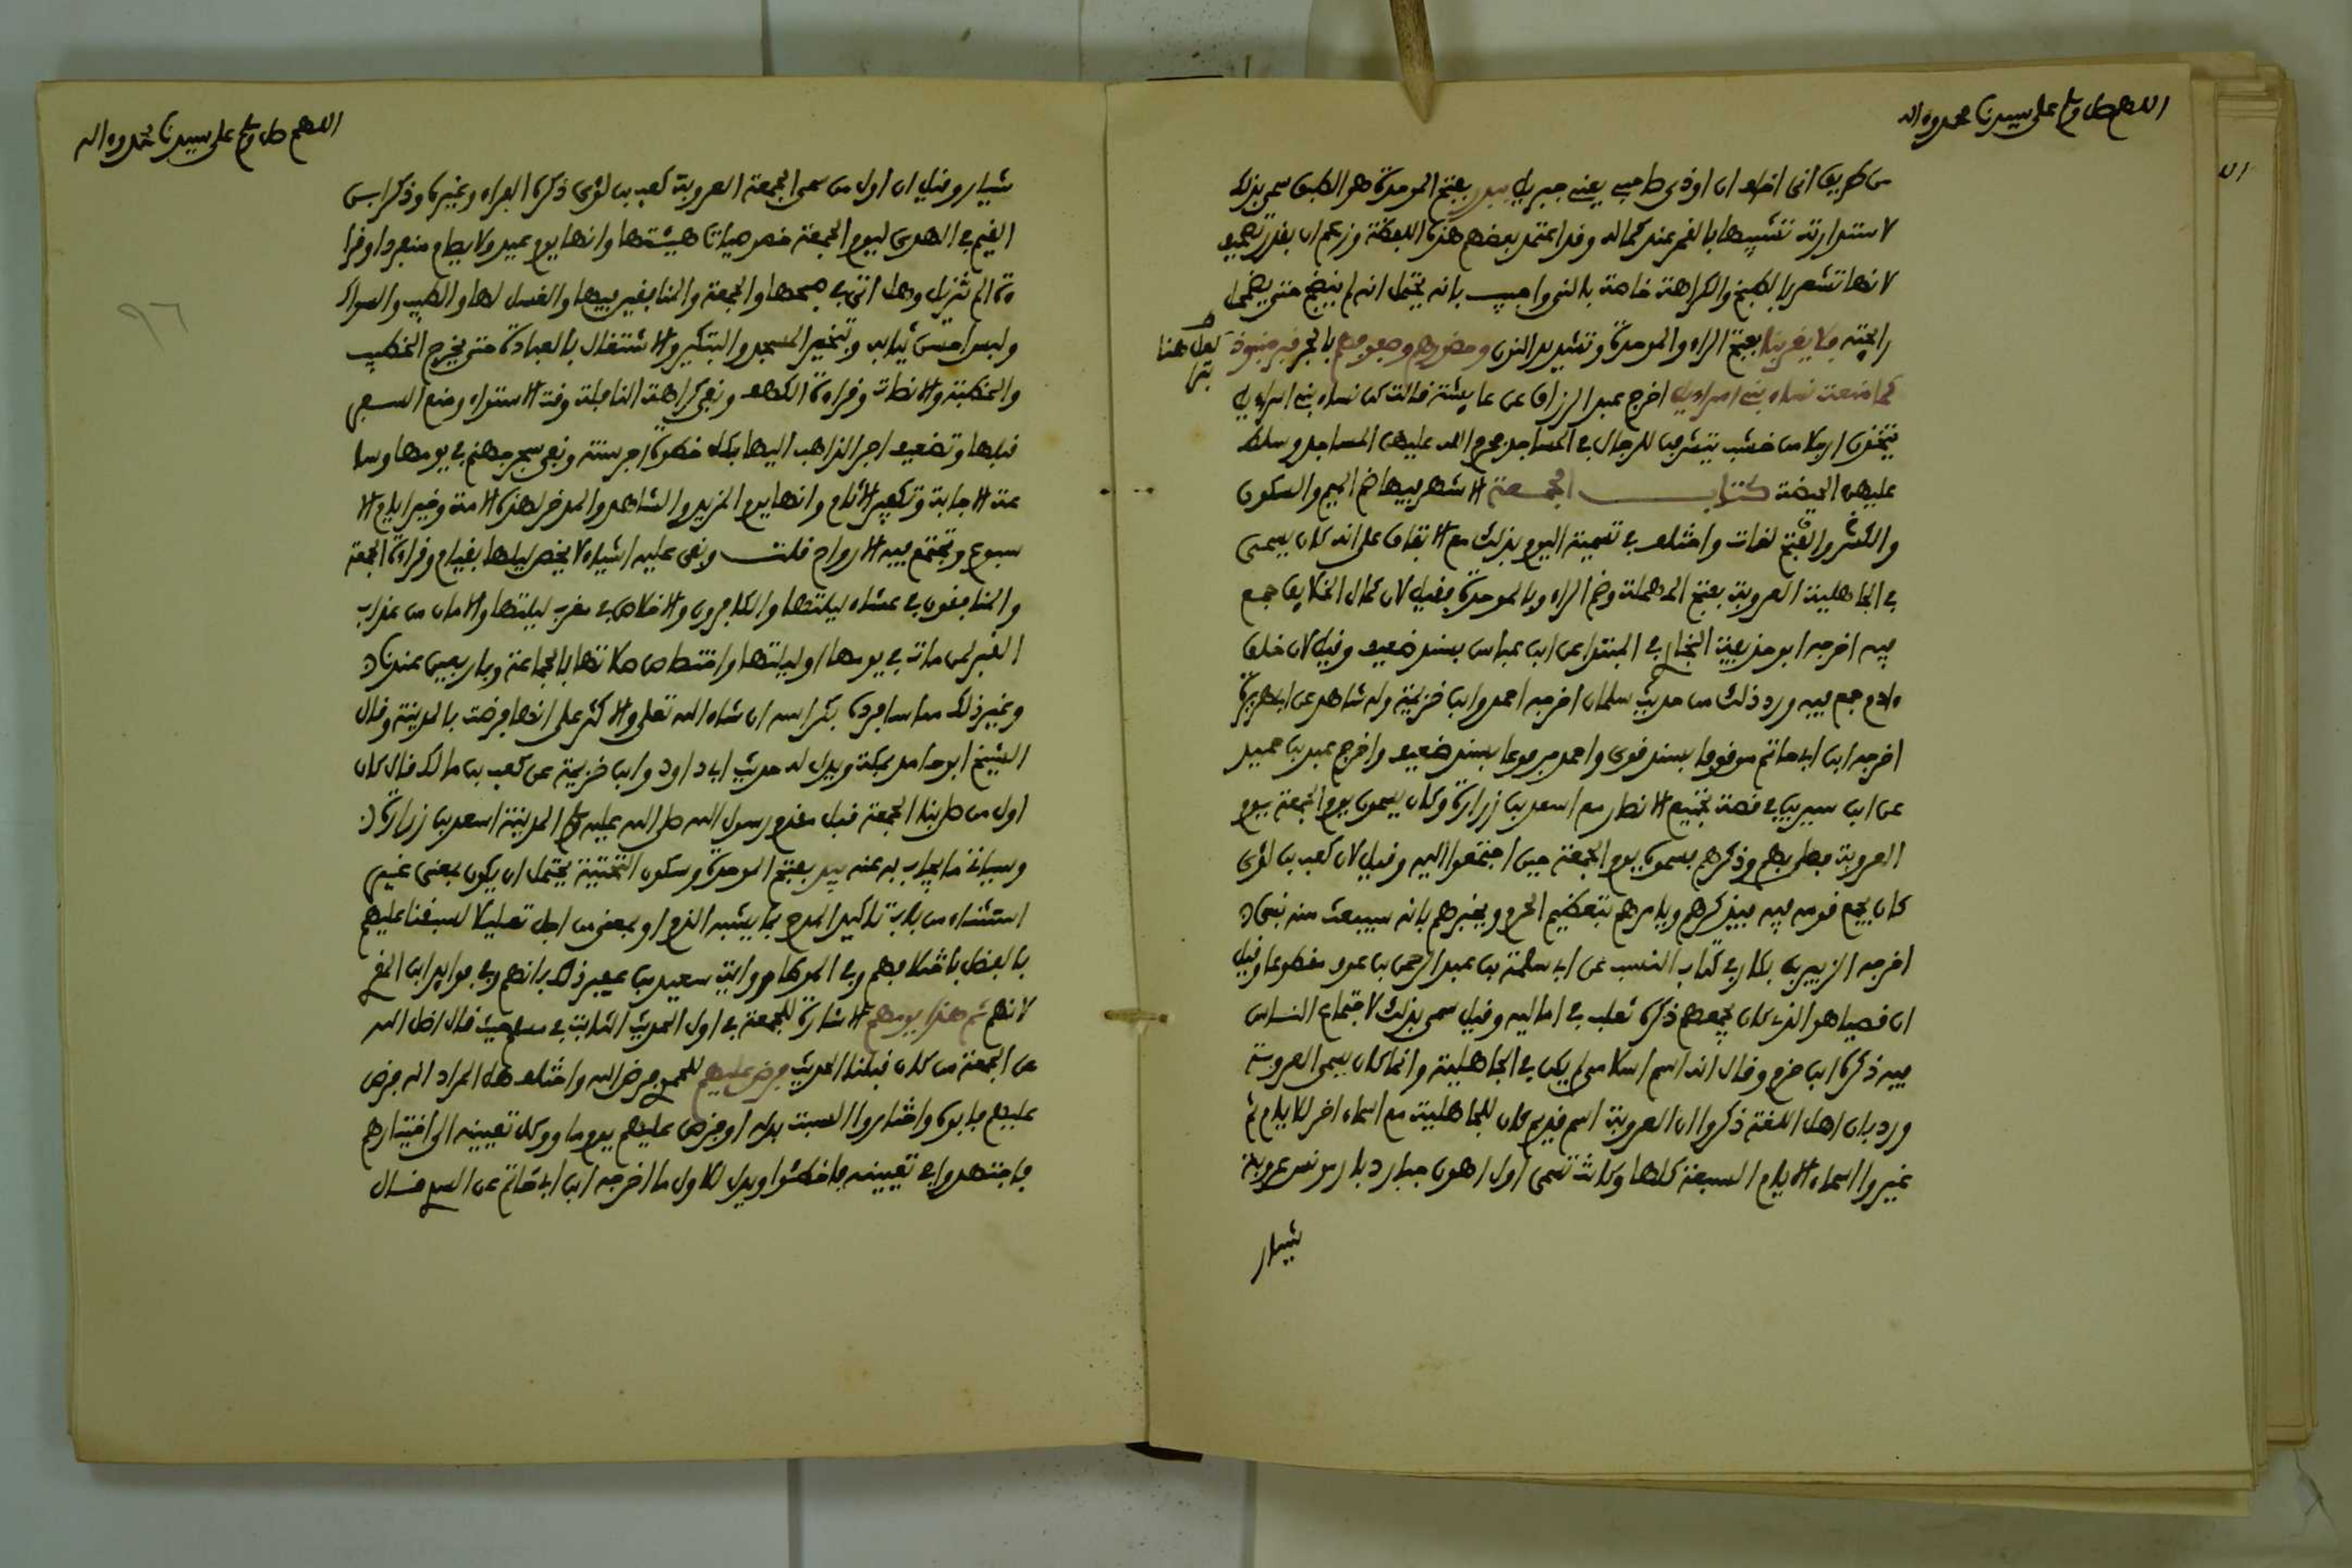 اللهم صل وسلم على سيدنا محمد وءاله
من طريق اني اخاف ان اوذي صاحبي يعني جبريل ببدر بفتح الموحدة هو الطبق سمي بذلك
لاستدارته تشبيها بالقمر عند كماله وقد اعتمد بعضهم هذه اللفظة وزعم ان بقدر تصحيف
لانها تشعر بالطبخ والكراهة خاصة بالنيء واجيب بانه يحتمل انه لم ينضج حتى يضمحل
رائحته فلا يقربنا بفتح الراء والموحدة وتشديد النون وحضورهم وصفوفهم بالجر قبر منبوذ
لعل هنا بتر
كما منعت نساء بني اسراءيل اخرج عبد الرزاق عن عايشة قالت كن نساء بني اسراءيل
يتخذن ارجلا من خشب يتشرفن للرجال في المساجد فحرم الله عليهن المساجد وسلط
عليهن الحيضة كتاب الجمعة الاشهر فيها ضم الميم والسكون
والكسر والفتح لغات واختلف في تسمية اليوم بذلك مع الاتفاق على انه كان يسمى
في الجاهلية العروبة بفتح المهملة وضم الراء وبالموحدة فقيل لان كمال الخلايق جمع
فيه اخرجه ابو حذيفة البخاري في المبتدا عن ابن عباس بسند ضعيف وقيل لان خلق
ءادم جمع فيه ورد ذلك من حديث سلمان اخرجه احمد وابن خزيمة وله شاهد عن ابي هريرة
اخرجه ابن ابي حاتم موقوفا بسند قوي واحمد مرفوعا بسند ضعيف واخرج عبد بن حميد
عن ابن سيرين في قصة تجميع الانصار مع اسعد بن زرارة وكان يسمون يوم الجمعة يوم
العروبة فصلى بهم وذكرهم فسموه يوم الجمعة حين اجتمعوا اليه وقيل لان كعب بن لؤي
كان يجمع قومه فيه فيذكرهم ويامرهم بتعظيم الحرم ويخبرهم بانه سيبعث منه نبي
اخرجه الزبير بن بكار في كتاب النسب عن ابي سلمة بن عبد الرحمن بن عوف مقطوعا وقيل
ان قصيا هو الذي كان يجمعهم ذكره ثعلب في اماليه وقيل سمي بذلك لاجتماع الناس
فيه ذكره ابن حزم وقال انه اسم اسلامي لم يكن في الجاهلية وانما كان يسمى العروبة
ورد بان اهل اللغة ذكروا ان العروبة اسم قديم كان للجاهلية مع اسماء اخر للايام ثم
غيروا اسماء الايام السبعة كلها وكانت تسمى اول اهون جبار دبار مونس عروبة
شيار
اللهم صل وسلم على سيدنا محمد وءاله
٩٦
شيار وقيل ان اول من سمى الجمعة العروبة كعب بن لؤي ذكره الفراء وغيره وذكر ابن
القيم في الهدي ليوم الجمعة خصوصيات هيئتها وانها يوم عيد ولا يصام منفردا وقرا
ءة الم تنزيل وهل اتى في صبحها والجمعة والمنافقين فيها والغسل لها والطيب والسواك
ولبس احسن ثيابه وتبخير المسجد والتبكير والاشتغال بالعبادة حتى يخرج الخطيب
والخطبة والانصات وقراءة الكهف ونفي كراهة النافلة وقت الاستواء ومنع السفر
قبلها وتضعيف اجر الذاهب اليها بكل خطوة اجر سنة ونفي سجر جهنم في يومها وسا
عة الاجابة وتكفير الاثام وانها يوم المزيد والشاهد والمدخر لهذه الامة وخير ايام الا
سبوع وتجتمع فيه الارواح قلت وبقي عليه اشياء لا يخص ليلها بقيام وقراءة الجمعة
والمنافقون في عشاء ليلتها والكافرون والاخلاص في مغرب ليلتها والامان من عذاب
القبر لمن مات في يومها او ليلتها واختصاص صلاتها بالجماعة وباربعين عندنا
وغير ذلك مما سافرده بكراسة ان شاء الله تعلى والاكثر على انها فرضت بالمدينة وقال
الشيخ ابو حامد بمكة ويدل له حديث ابي داود وابن خزيمة عن كعب بن مالك قال كان
اول من صلى بنا الجمعة قبل مقدم رسول الله صلى الله عليه وسلم المدينة اسعد بن زرارة
وسياتي ما يجاب به عنه بيد بفتح الموحدة وسكون التحتية يحتمل ان يكون بمعنى غير
استثناء من باب تاكيد المدح بما يشبه الذم او بمعنى من اجل تعليلا لسبقنا عليهم
بالفضل باختلافهم وفي الموطا رواية سعيد بن عفير ذلك بانهم وفي فوايد ابن المقري
لانهم ثم هذا يومهم الاشارة للجمعة في اول الحديث الثابت في مسلم حيث قال اضل الله
عن الجمعة من كان قبلنا الحديث فرض عليهم للحموي فرض الله واختلف هل المراد انه فرض
عليهم فابوه واختاروا السبت بدله او فرض عليهم يوم ما ووكل تعيينه الى اختيارهم
فاجتهدوا في تعيينه فاخطئوا ويدل للاول ما اخرجه ابن ابي حاتم عن السدي قال